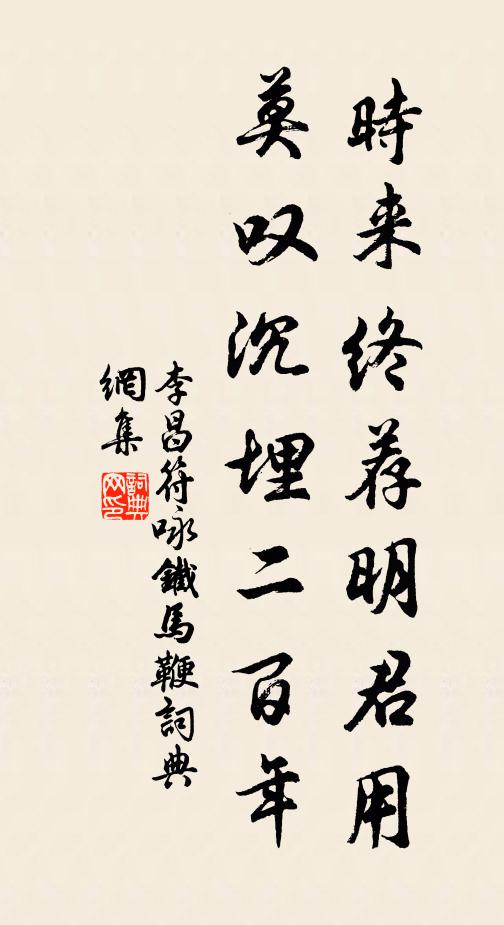 時来终荐明君用
莫叹沉埋二百年
李昌符咏鐵馬鞭詞典
網集
詞典网印